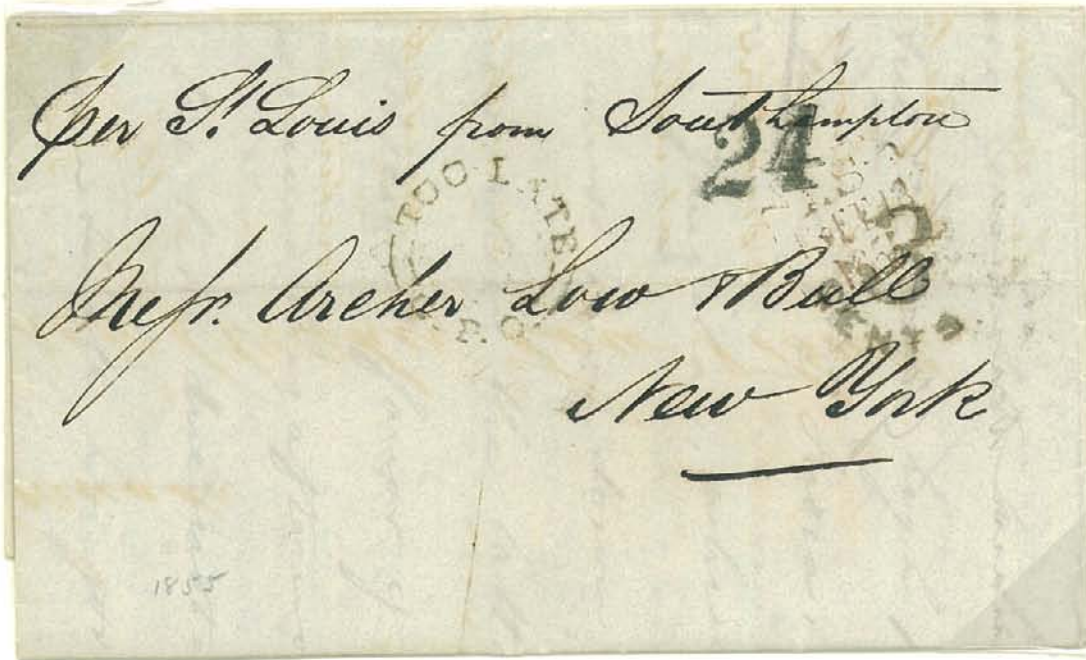 per St. Louis from Southampton
24
TOO-LATE
Messr. Archer Low & Bull
P.O
3
CENTS
New York
1855